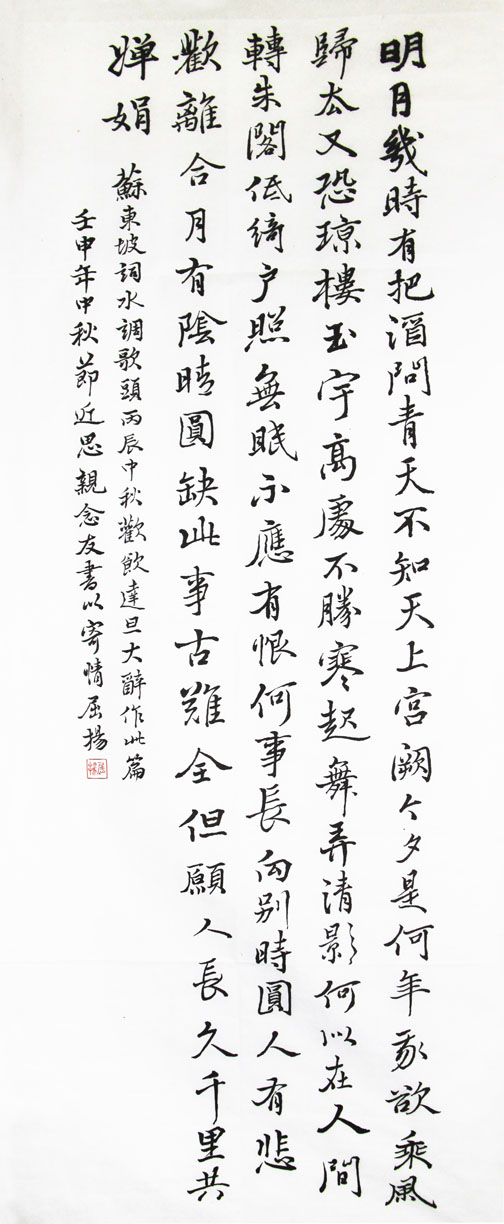 明月幾時有把酒問青天不知天上宮闕今夕是何年我欲乘風
歸去又恐琼樓玉宇高處不勝寒起舞弄清影何似在人間
轉朱閣低綺户照無眠不應有恨何事長向别時圓人有悲
歡離合月有陰晴圓缺此事古難全但願人長久千里共
嬋娟
蘇東坡詞水調歌頭丙辰中秋歡飲達旦大醉作此篇
壬申年中秋節近思親念友書以寄情屈揚